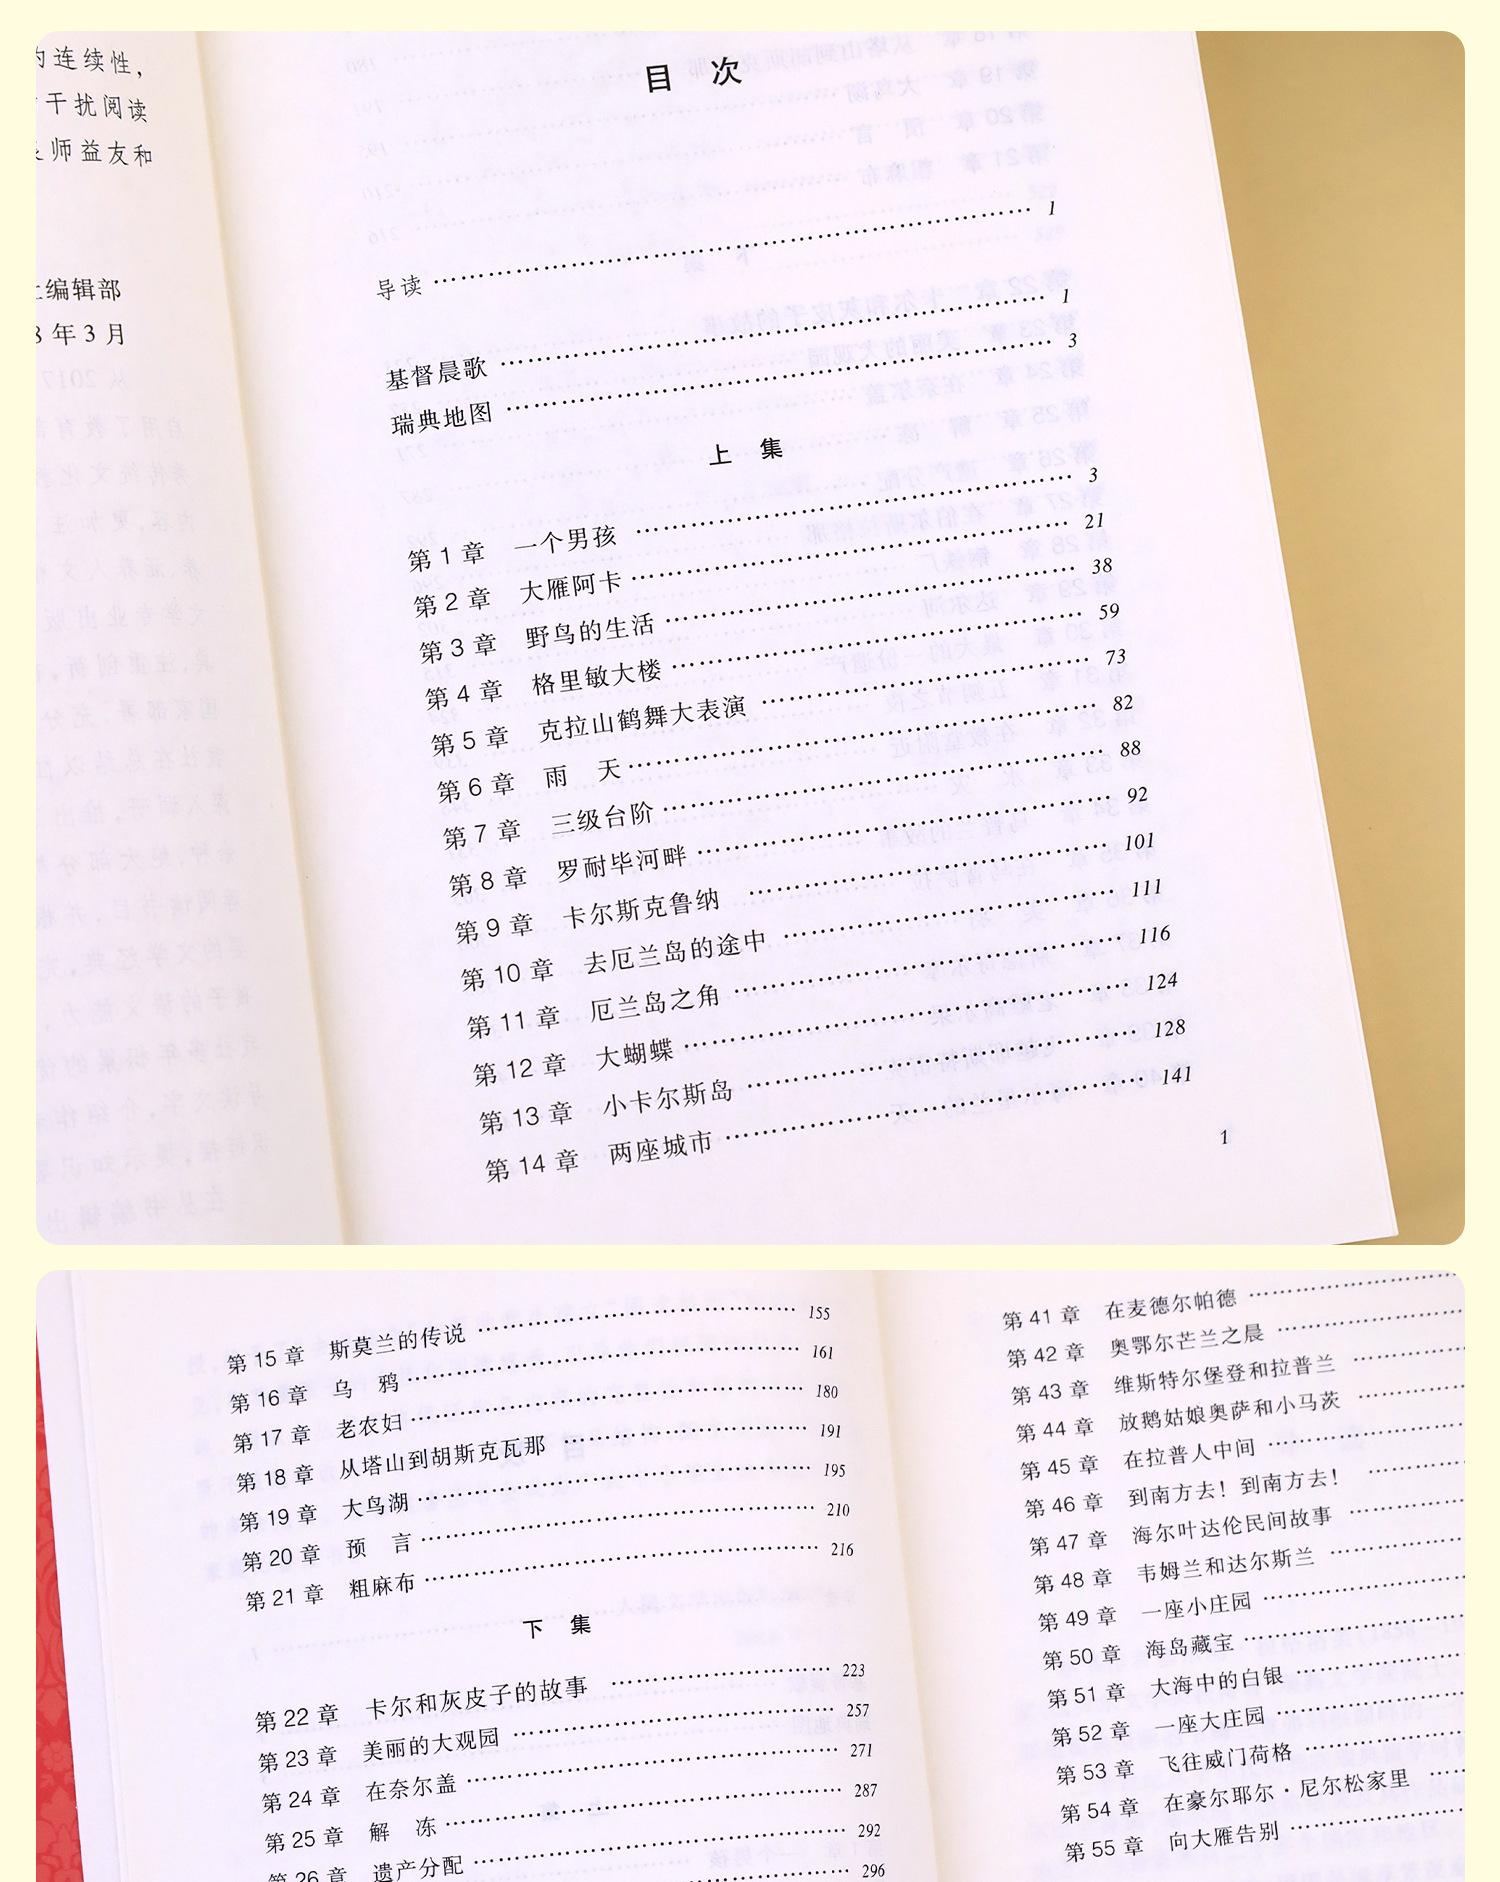 的连续性，
干扰阅读
师益友和
编辑部
8 年 3 月
目 次
导读 …… 1
基督晨歌 …… 1
瑞典地图 …… 3
上 集
第 1 章 一个男孩 …… 3
第 2 章 大雁阿卡 …… 21
第 3 章 野鸟的生活 …… 38
第 4 章 格里敏大楼 …… 59
第 5 章 克拉山鹤舞大表演 …… 73
第 6 章 雨 天 …… 82
第 7 章 三级台阶 …… 88
第 8 章 罗耐毕河畔 …… 92
第 9 章 卡尔斯克鲁纳 …… 101
第 10 章 去厄兰岛的途中 …… 111
第 11 章 厄兰岛之角 …… 116
第 12 章 大蝴蝶 …… 124
第 13 章 小卡尔斯岛 …… 128
第 14 章 两座城市 …… 141
1
第 15 章 斯莫兰的传说 …… 155
第 16 章 乌 鸦 …… 161
第 17 章 老农妇 …… 180
第 18 章 从塔山到胡斯克瓦那 …… 191
第 19 章 大鸟湖 …… 195
第 20 章 预 言 …… 210
第 21 章 粗麻布 …… 216
下 集
第 22 章 卡尔和灰皮子的故事 …… 223
第 23 章 美丽的大观园 …… 257
第 24 章 在奈尔盖 …… 271
第 25 章 解 冻 …… 287
第 26 章 遗产分配 …… 292
…… 296
第 41 章 在麦德尔帕德 ……
第 42 章 奥鄂尔芒兰之晨 ……
第 43 章 维斯特尔堡登和拉普兰 ……
第 44 章 放鹅姑娘奥萨和小马茨 ……
第 45 章 在拉普人中间 ……
第 46 章 到南方去！到南方去！ ……
第 47 章 海尔叶达伦民间故事 ……
第 48 章 韦姆兰和达尔斯兰 ……
第 49 章 一座小庄园 ……
第 50 章 海岛藏宝 ……
第 51 章 大海中的白银 ……
第 52 章 一座大庄园 ……
第 53 章 飞往威门荷格 ……
第 54 章 在豪尔耶尔·尼尔松家里 ……
第 55 章 向大雁告别 ……